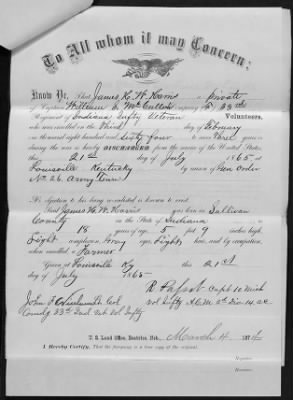 To All whom it may Concern:
Know Ye, That James H. W. Harris a private
of Captain William E. McCullough company, 33rd
Regiment of Indiana Infty Veteran Volunteers,
who was enrolled on the third day of February
one thousand eight hundred and sixty four to serve three years or
during the war is hereby DISCHARGED from the service of the United States,
this 21st day of July 1865 at
Louisville Kentucky by reason of
No. 26. Army
No objection to his being re-enlisted is known to exist.
Said James W. Harris was born in Sullivan
County in the State of Indiana
18 years of age, 5 feet 9 inches high,
Light complexion, eyes, Light hair, and by occupation,
when enrolled, a Farmer
Given at Louisville Ky this 21st
day of July 1865.
Capt 10 Mich
vol Infty A.C.M. 2d Div 14 AC
John F Col
Comdg 33rd Ind Vet Vol Infty
U. S. Land Office, Neb., March 4, 187
I Hereby Certify, That the foregoing is a true copy of the original.
Register.
Receiver.